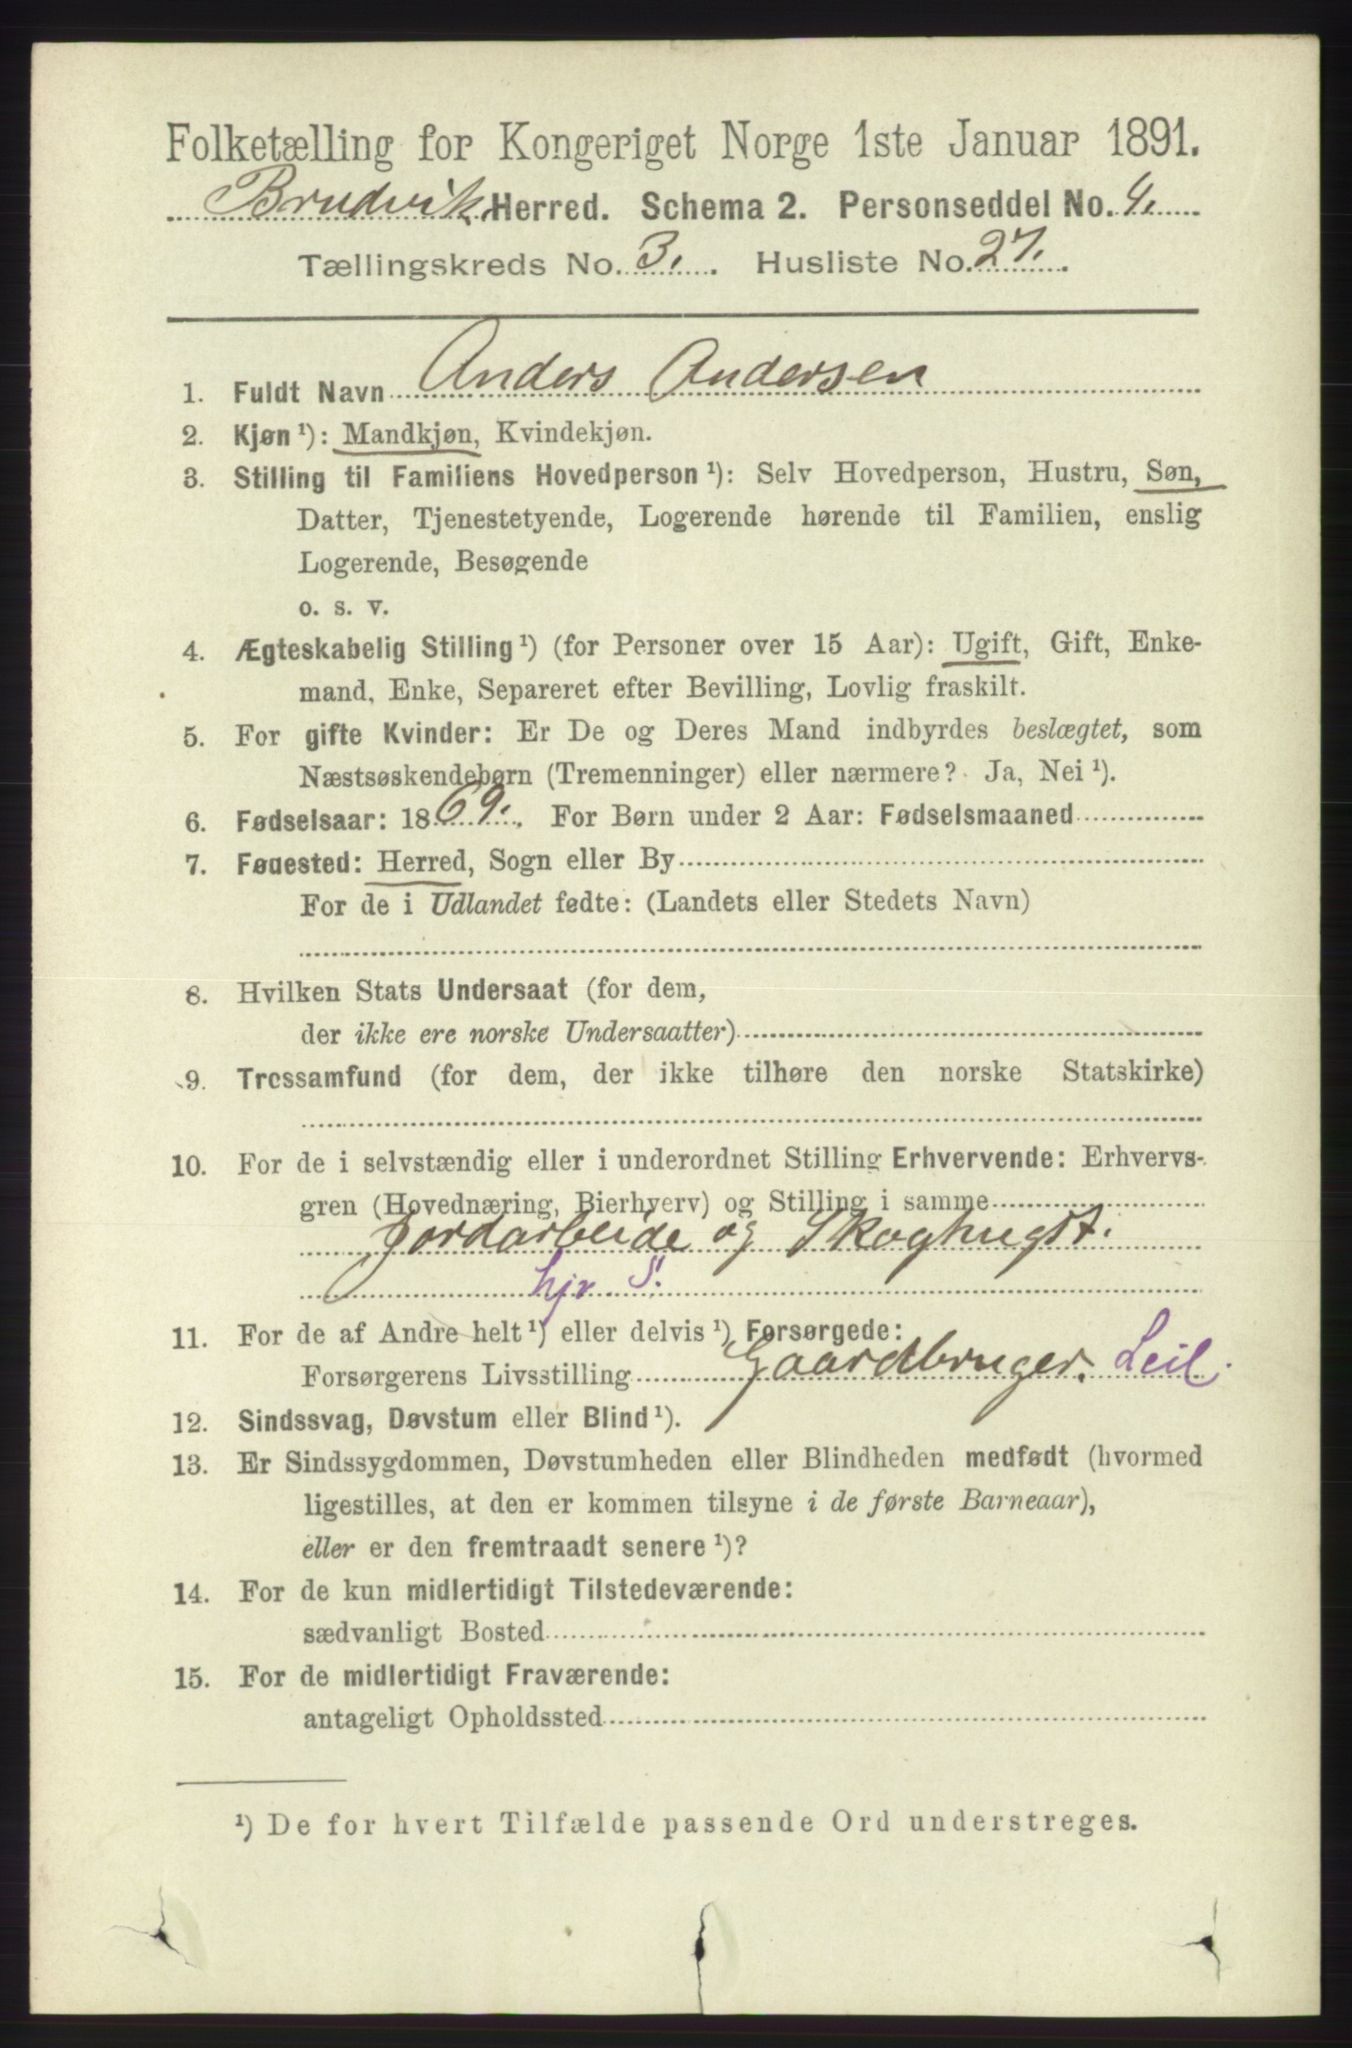 Folketælling for Kongeriget Norge 1ste Januar 1891.
Bruvik Herred. Schema 2. Personseddel No. 4.
Tællingskreds No. 3. Husliste No. 27.
1. Fuldt Navn Anders Andersen
2. Kjøn ¹): Mandkjøn, Kvindekjøn.
3. Stilling til Familiens Hovedperson ¹): Selv Hovedperson, Hustru, Søn,
Datter, Tjenestetyende, Logerende hørende til Familien, enslig
Logerende, Besøgende
o. s. v.
4. Ægteskabelig Stilling ¹) (for Personer over 15 Aar): Ugift, Gift, Enke-
mand, Enke, Separeret efter Bevilling, Lovlig fraskilt.
5. For gifte Kvinder: Er De og Deres Mand indbyrdes beslægtet, som
Næstsøskendebørn (Tremenninger) eller nærmere? Ja, Nei ¹).
6. Fødselsaar: 1869. For Børn under 2 Aar: Fødselsmaaned
7. Fødested: Herred, Sogn eller By
For de i Udlandet fødte: (Landets eller Stedets Navn)
8. Hvilken Stats Undersaat (for dem,
der ikke ere norske Undersaatter)
9. Trossamfund (for dem, der ikke tilhøre den norske Statskirke)
10. For de i selvstændig eller i underordnet Stilling Erhvervende: Erhvervs-
gren (Hovednæring, Bierhverv) og Stilling i samme
Jordarbeide og Skoghugst.
hjr S.
11. For de af Andre helt ¹) eller delvis ¹) Forsørgede:
Forsørgerens Livsstilling Gaardbruger. Leil.
12. Sindssvag, Døvstum eller Blind ¹).
13. Er Sindssygdommen, Døvstumheden eller Blindheden medfødt (hvormed
ligestilles, at den er kommen tilsyne i de første Barneaar),
eller er den fremtraadt senere ¹)?
14. For de kun midlertidigt Tilstedeværende:
sædvanligt Bosted
15. For de midlertidigt Fraværende:
antageligt Opholdssted
¹) De for hvert Tilfælde passende Ord understreges.